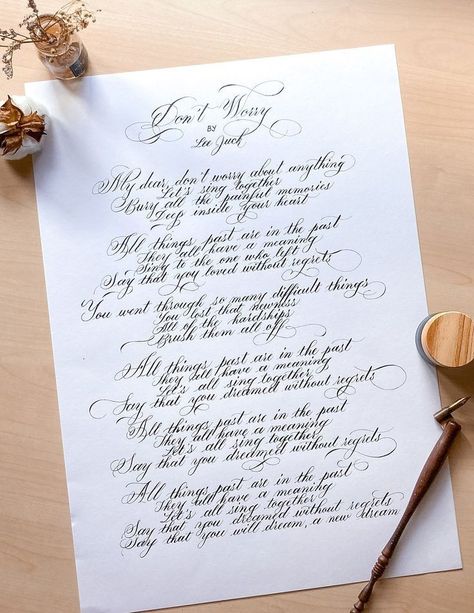 Don't Worry
BY
Lee Juck
My dear, don't worry about anything
Let's sing together
Burry all the painful memories
Deep inside your heart
All things past are in the past
They all have a meaning
Sing to the one who left
Say that you loved without regrets
You went through so many difficult things
You lost that newness
All of the hardships
Brush them all off
All things past are in the past
They all have a meaning
Let's all sing together
Say that you dreamed without regrets
All things past are in the past
They all have a meaning
Let's all sing together
Say that you dreamed without regrets
All things past are in the past
They all have a meaning
Let's all sing together
Say that you dreamed without regrets
Say that you will dream, a new dream